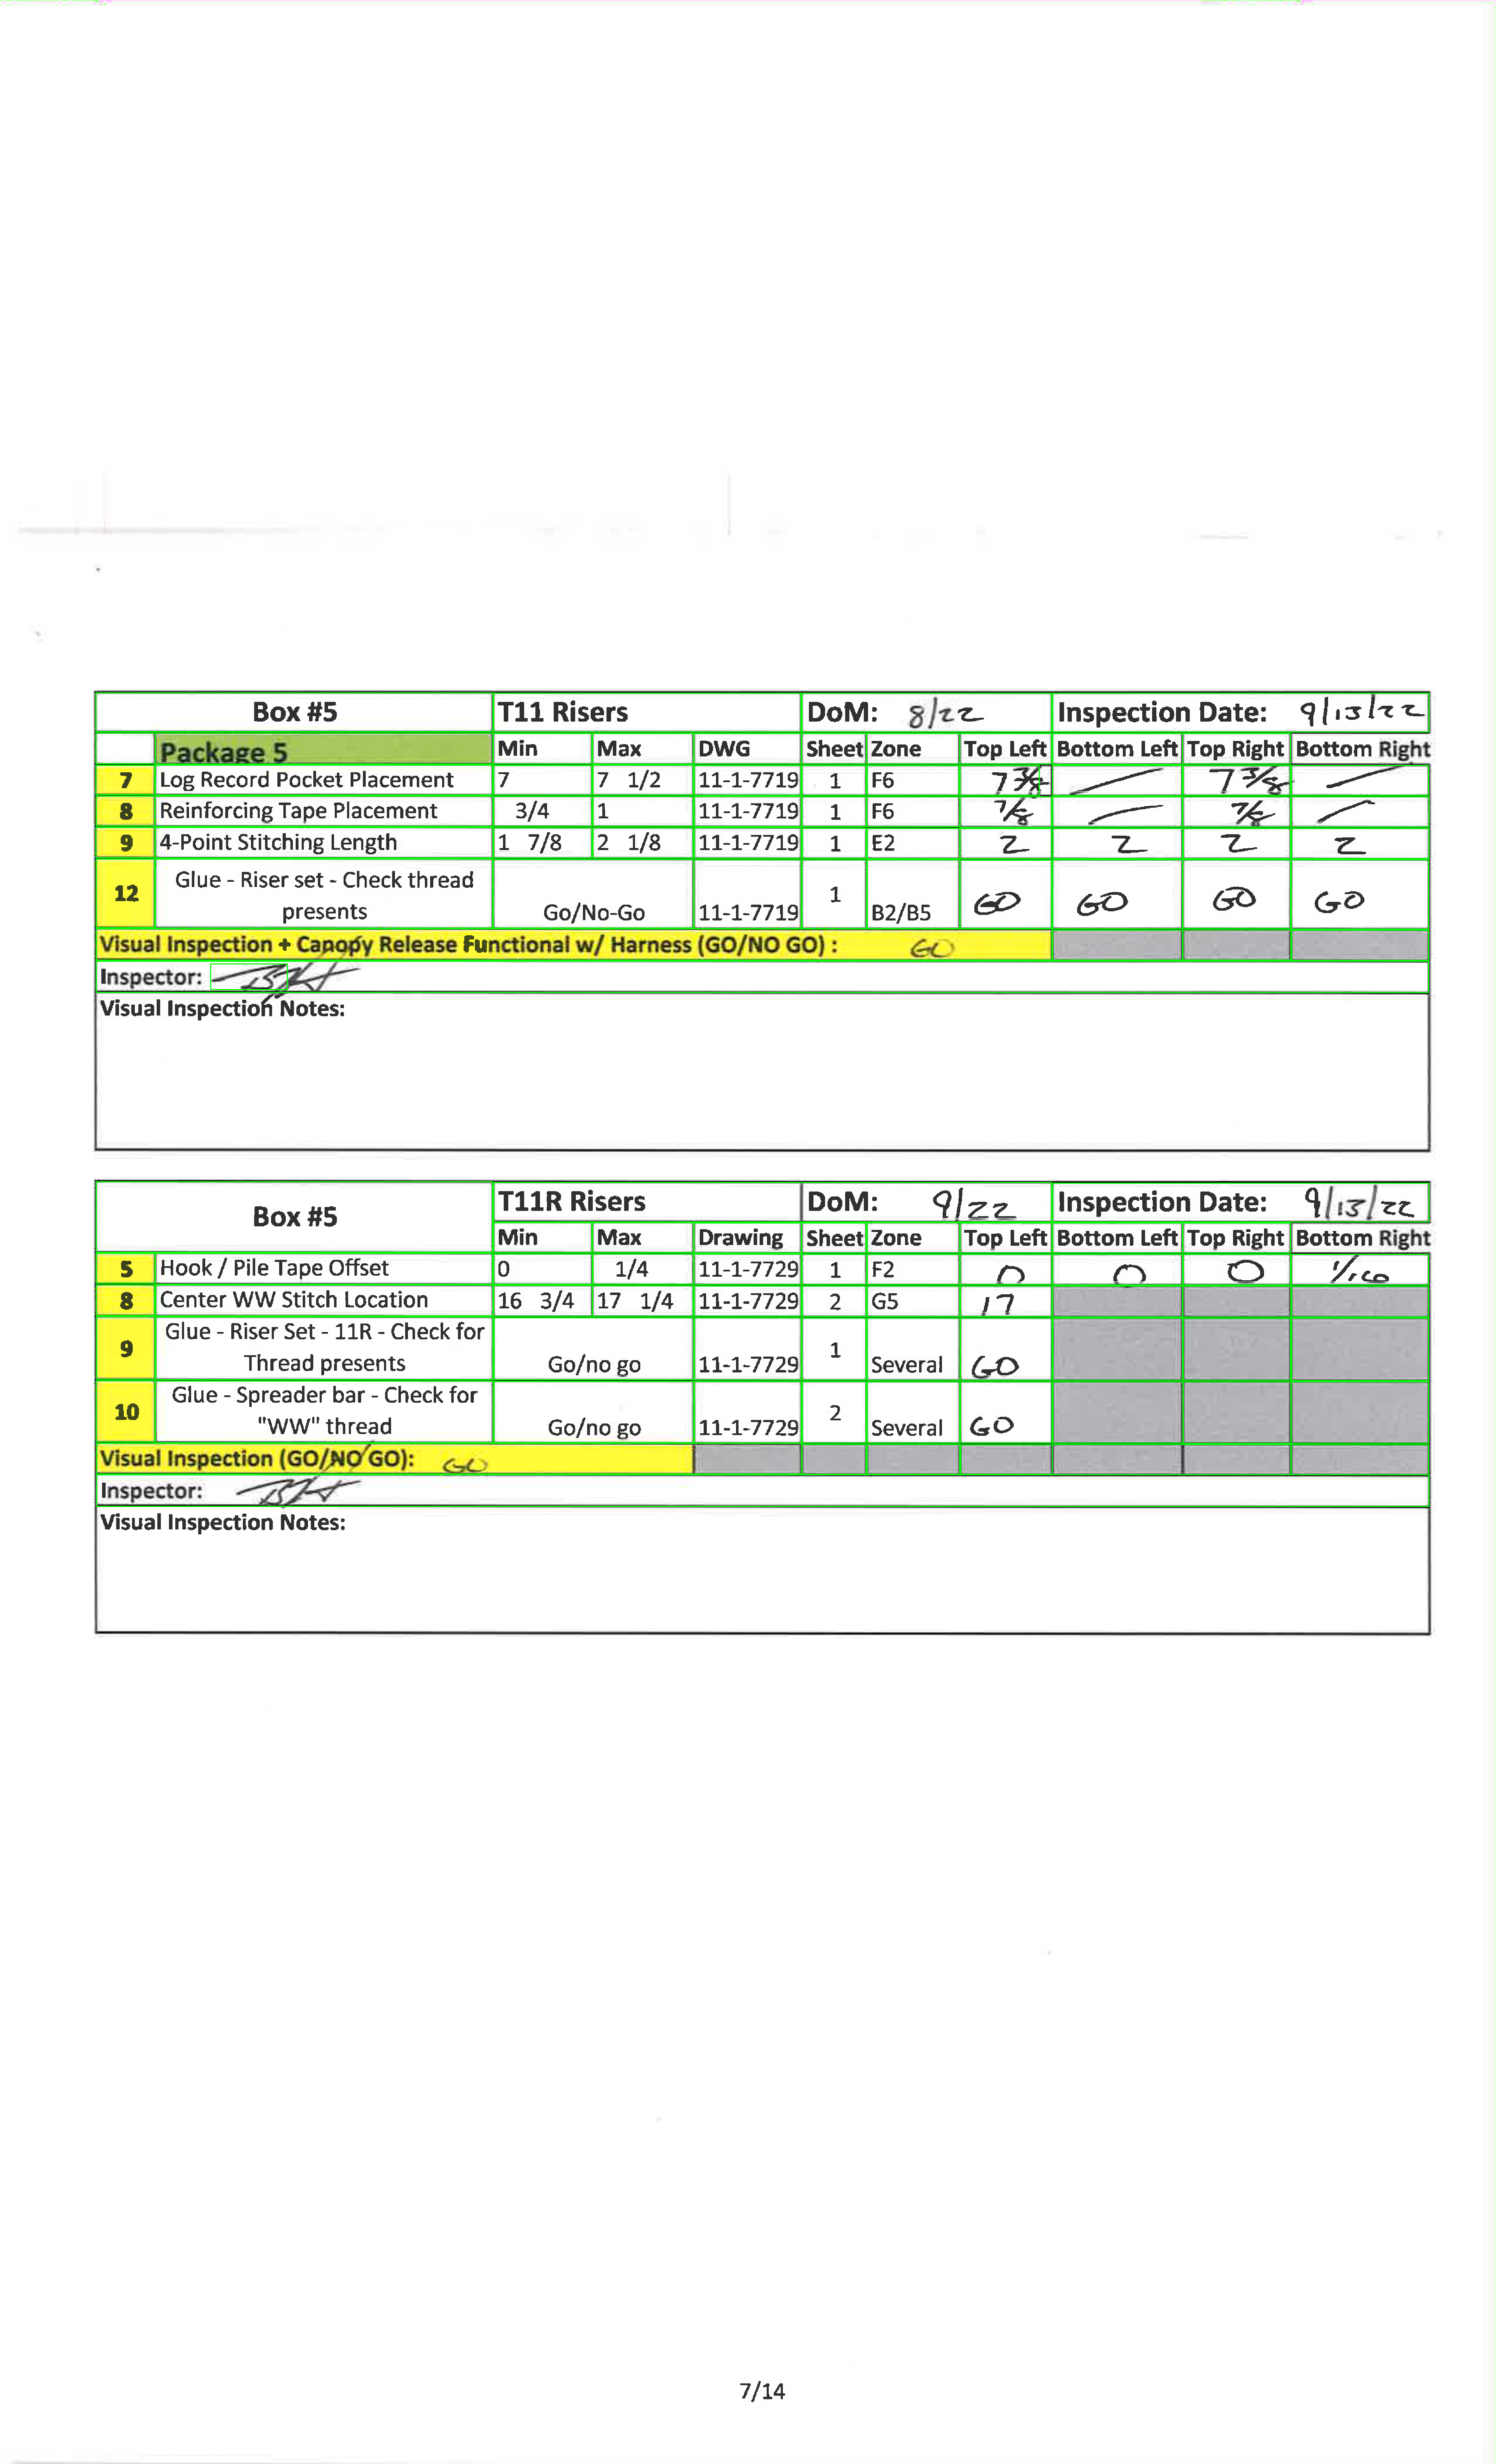 Box #5 T11 Risers DoM: 8/22 Inspection Date: 9/13/22
Package 5 Min Max DWG Sheet Zone Top Left Bottom Left Top Right Bottom Right
7 Log Record Pocket Placement 7 7 1/2 11-1-7719 1 F6 7 3/8 — 7 3/8 —
8 Reinforcing Tape Placement 3/4 1 11-1-7719 1 F6 7/8 — 7/8 —
9 4-Point Stitching Length 1 7/8 2 1/8 11-1-7719 1 E2 2 2 2 2
12 Glue - Riser set - Check thread
presents Go/No-Go 11-1-7719 1 B2/B5 GO GO GO GO
Visual Inspection + Canopy Release Functional w/ Harness (GO/NO GO) : GO
Inspector:
Visual Inspection Notes:
Box #5 T11R Risers DoM: 9/22 Inspection Date: 9/13/22
Min Max Drawing Sheet Zone Top Left Bottom Left Top Right Bottom Right
5 Hook / Pile Tape Offset 0 1/4 11-1-7729 1 F2 0 0 0 1/16
8 Center WW Stitch Location 16 3/4 17 1/4 11-1-7729 2 G5 17
9 Glue - Riser Set - 11R - Check for
Thread presents Go/no go 11-1-7729 1 Several GO
10 Glue - Spreader bar - Check for
"WW" thread Go/no go 11-1-7729 2 Several GO
Visual Inspection (GO/NO GO): GO
Inspector:
Visual Inspection Notes:
7/14